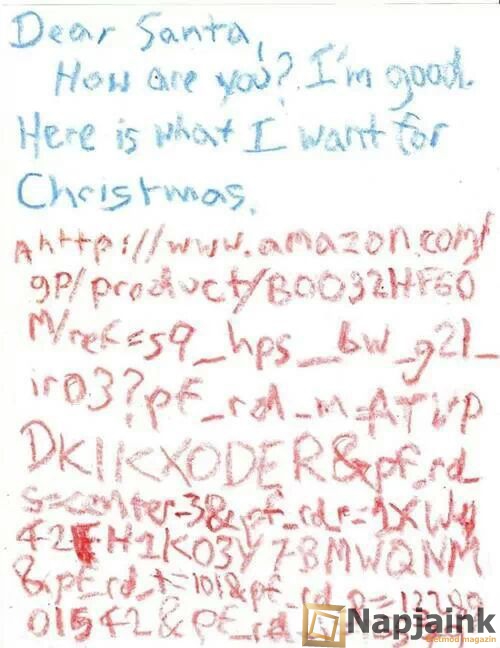 Dear Santa,
How are you? I'm good.
Here is what I want for
Christmas.
A http://www.amazon.com/
gp/product/B0032HF60
M/ref=s9_hps_bw_g21_
ir03?pf_rd_m=ATVP
DKIKX0DER&pf_rd_
s=center-3&pf_rd_r=1XWY
42FH1K03Y7BMWQNM
&pf_rd_t=101&pf_rd_p=13280
01542&pf_rd
Napjaink